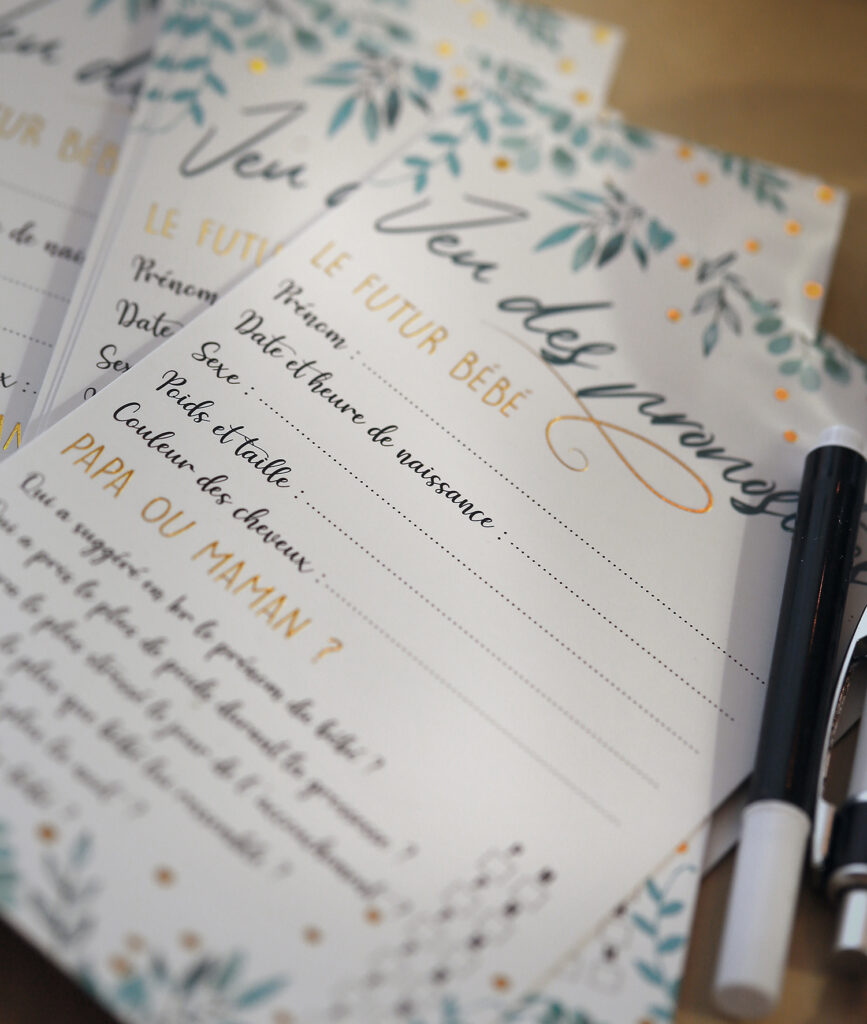 Jeu des pronost
LE FUTUR BÉBÉ
Prénom :
Date et heure de naissance :
Sexe :
Poids et taille :
Couleur des cheveux :
PAPA OU MAMAN ?
Qui a suggéré en 1er le prénom du bébé ?
Qui a pris le plus de poids durant la grossesse ?
le plus stressé le jour de l'accouchement ?
le plus que bébé lui ressemble ?
plus la nuit ?
bébé ?
Jeu
LE FUTU
Prénom
Date
Sex
Jeu d
UR BÉBÉ
de nai
x :
AN